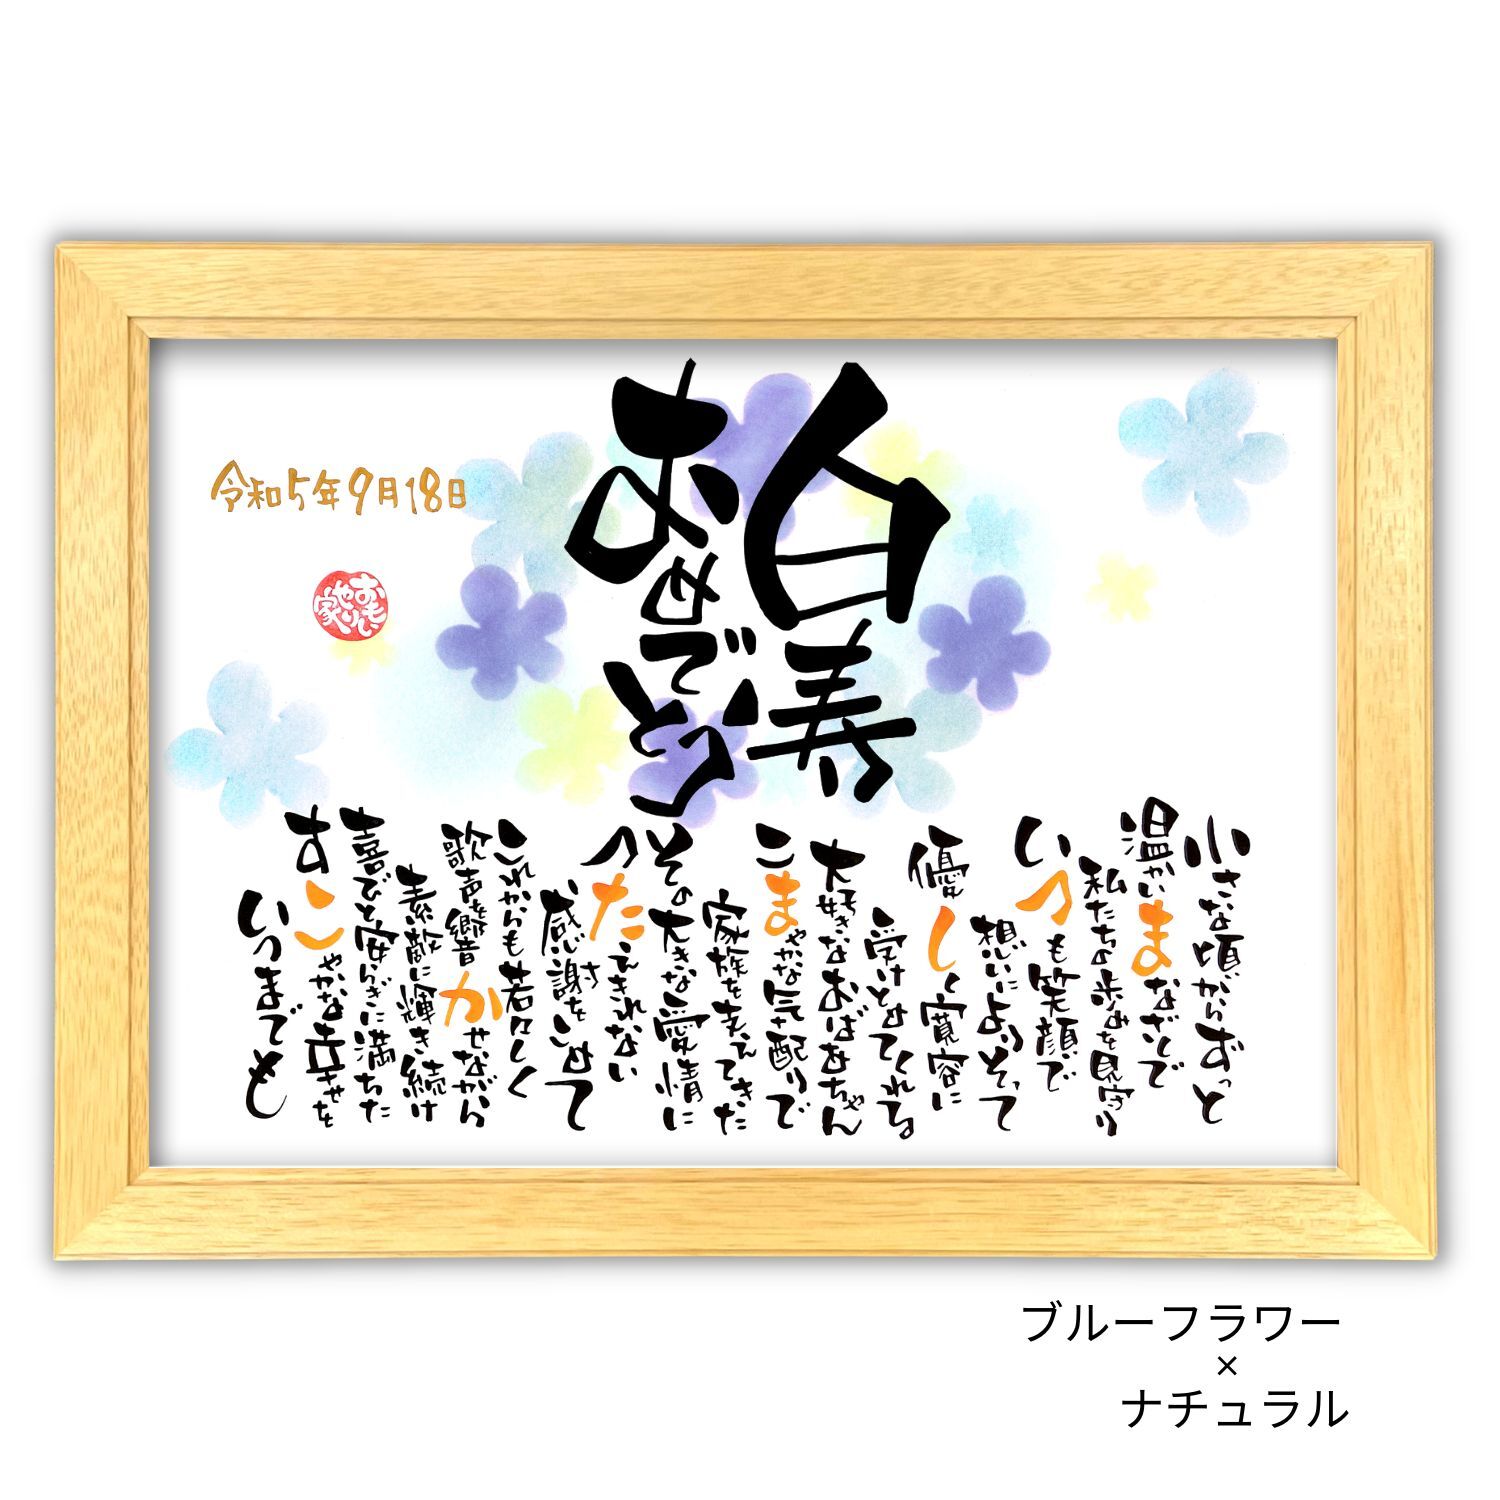 白寿
おめでとう
令和5年9月18日
おもいやり家
小さな頃からずっと
温かいまなざしで
私たちの歩みを見守り
いつも笑顔で
想いによりそって
優しく寛容に
受けとめてくれる
大好きなおばあちゃん
こまやかな気配りで
家族を支えてきた
その大きな愛情に
つたえきれない
感謝をこめて
これからも若々しく
歌声を響かせながら
素敵に輝き続け
喜びと安らぎに満ちた
すこやかな幸せを
いつまでも
ブルーフラワー
×
ナチュラル